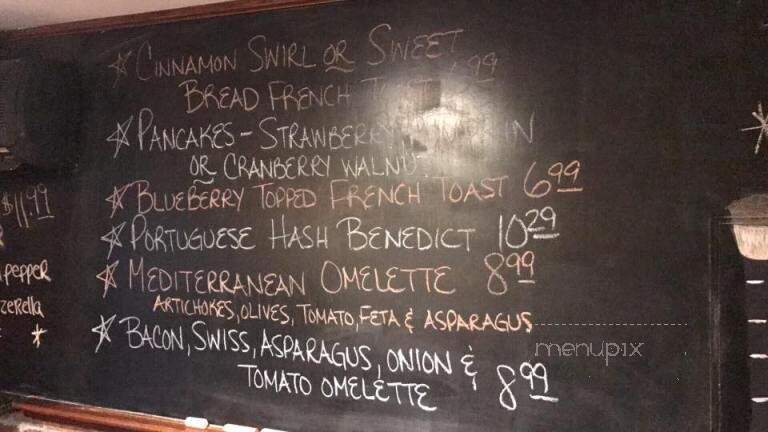 ☆ CINNAMON SWIRL OR SWEET
BREAD FRENCH 99
☆ PANCAKES - STRAWBERRY
OR CRANBERRY WALNUT
☆ BLUEBERRY TOPPED FRENCH TOAST 6 99
☆ PORTUGUESE HASH BENEDICT 10 29
☆ MEDITERRANEAN OMELETTE 8 99
ARTICHOKES, OLIVES, TOMATO, FETA & ASPARAGUS
☆ BACON, SWISS, ASPARAGUS, ONION &
TOMATO OMELETTE 8 99
$11.99
pepper
zerella
menupix